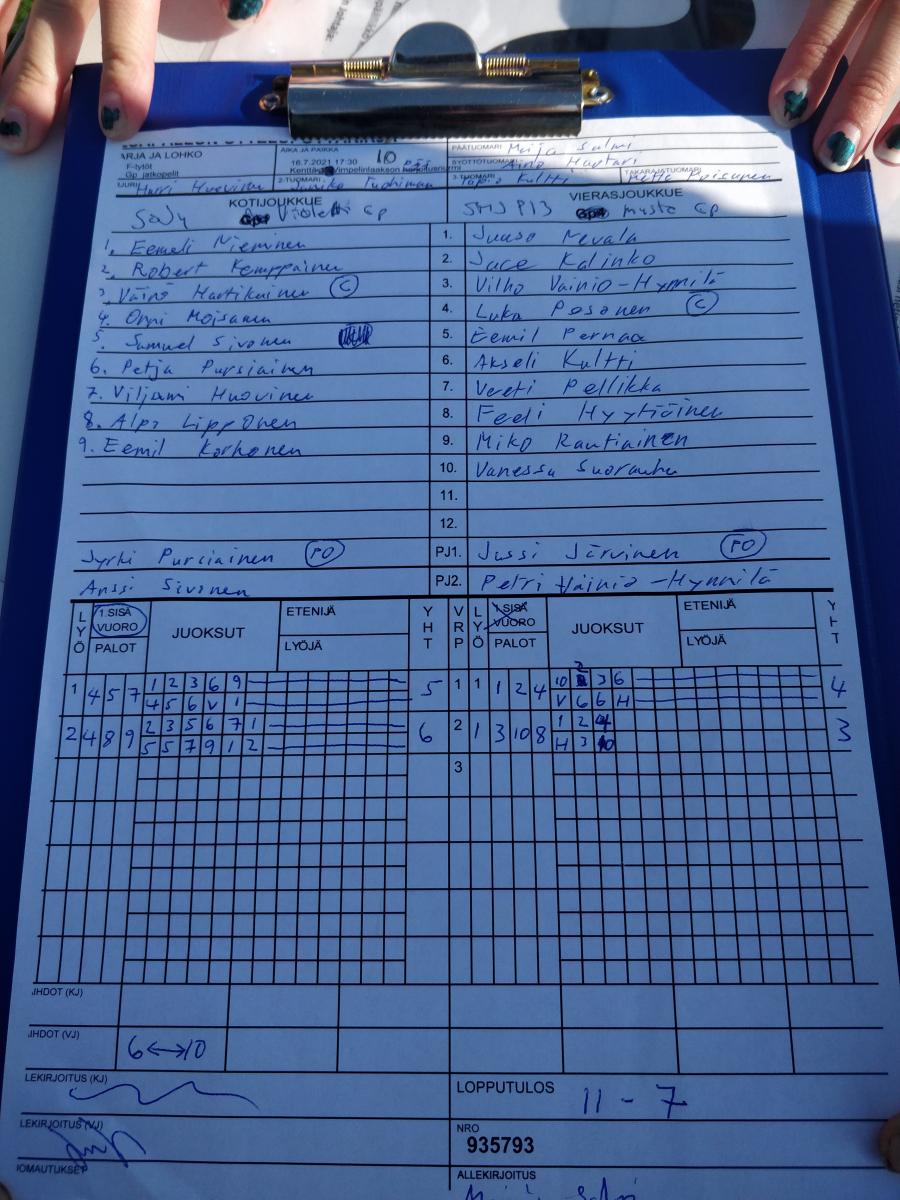 ARJA JA LOHKO
F-tytöt
Gp jatkopelit
AIKA JA PAIKKA 10
16.7.2021 17:30
PÄÄTUOMARI Maija Salmi
SYÖTTÖTUOMARI Aino Hautari
Harri Huovinen
2-TUOMARI
3-TUOMARI Tapio Kultti
TAKARAJATUOMARI
KOTIJOUKKUE
VIERASJOUKKUE
Violetti Gp
SMJ P13 musta Gp
1. Eemeli Nieminen
1. Juuso Nevala
2. Robert Kemppainen
2. Juce Kalinko
3. Väinö Hartikainen C
3. Vilho Vainio-Hynnilä
4. Onni Moisanen
4. Luka Posonen C
5. Samuel Sivonen
5. Eemil Pernaa
6. Petja Pursiainen
6. Akseli Kultti
7. Viljami Huovinen
7. Veeti Pellikka
8. Alpo Lipponen
8. Feedi Hyytiäinen
9. Eemil Korhonen
9. Miko Rautiainen
10. Vanessa Suorauha
11.
12.
Jyrki Purciainen PO
PJ1. Jussi Järvinen PO
Anssi Sivonen
PJ2. Petri Vainio-Hynnilä
LYÖ 1.SISÄ VUORO PALOT JUOKSUT ETENIJÄ LYÖJÄ YHT
VRP LYÖ 1.SISÄ VUORO PALOT JUOKSUT ETENIJÄ LYÖJÄ YHT
1 4 5 7 1 2 3 6 9 5
4 5 6 V 1
1 1 1 2 4 10 2 3 6 4
V 6 6 H
2 4 8 9 2 3 5 6 7 1 6
5 5 7 9 1 2
2 1 3 10 8 1 2 4 3
H 3 10
3
IHDOT (KJ)
IHDOT (VJ)
6 ↔ 10
LEKIRJOITUS (KJ)
LOPPUTULOS
11 - 7
LEKIRJOITUS (VJ)
NRO
935793
IOMAUTUKSET
ALLEKIRJOITUS